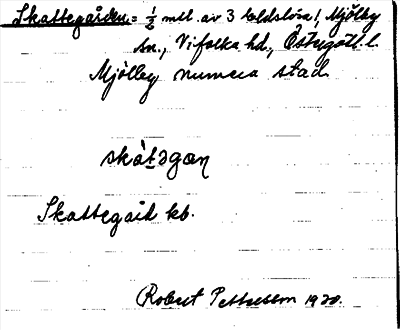 Skattegården = 1/2 mtl. av 3 Eldslösa, Mjölby
sn., Vifolka hd., Östergötl. l.
Mjölby numera stad
skát̠əgan
Skattegård kb.
Robert Pettersson 1930.